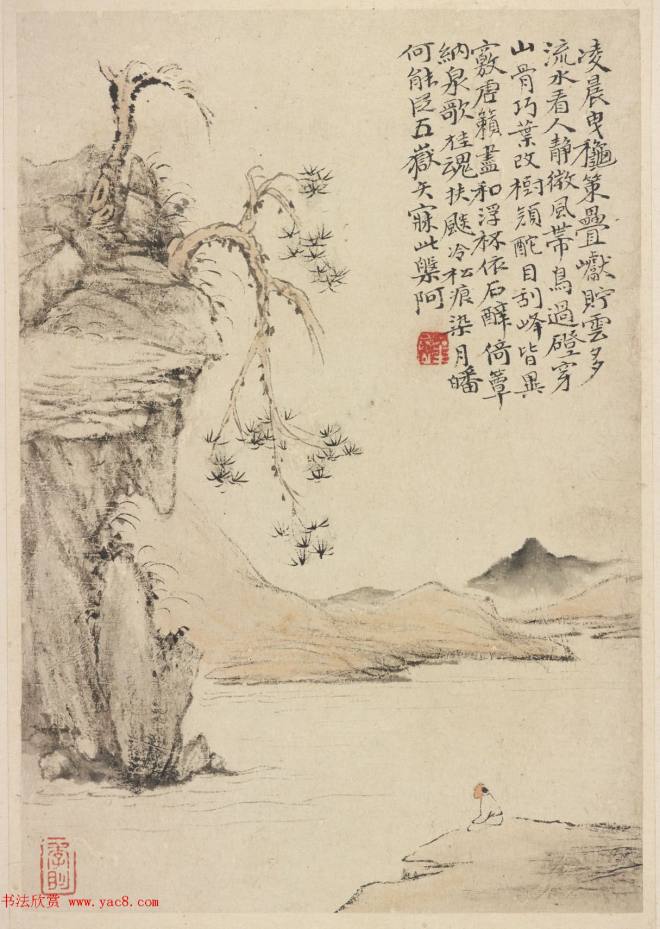 凌晨曳筇策疊巘貯雲多
流水看人靜微風帶鳥過磴穿
山骨巧葉改樹顏酡目刮峰皆異
竅虛籟盡和浮杯依石醉倚蕈
納泉歌狂魂扶颼冷松痕染月皤
何能泛五嶽矢寐此槃阿
書法欣赏 www.yac8.com